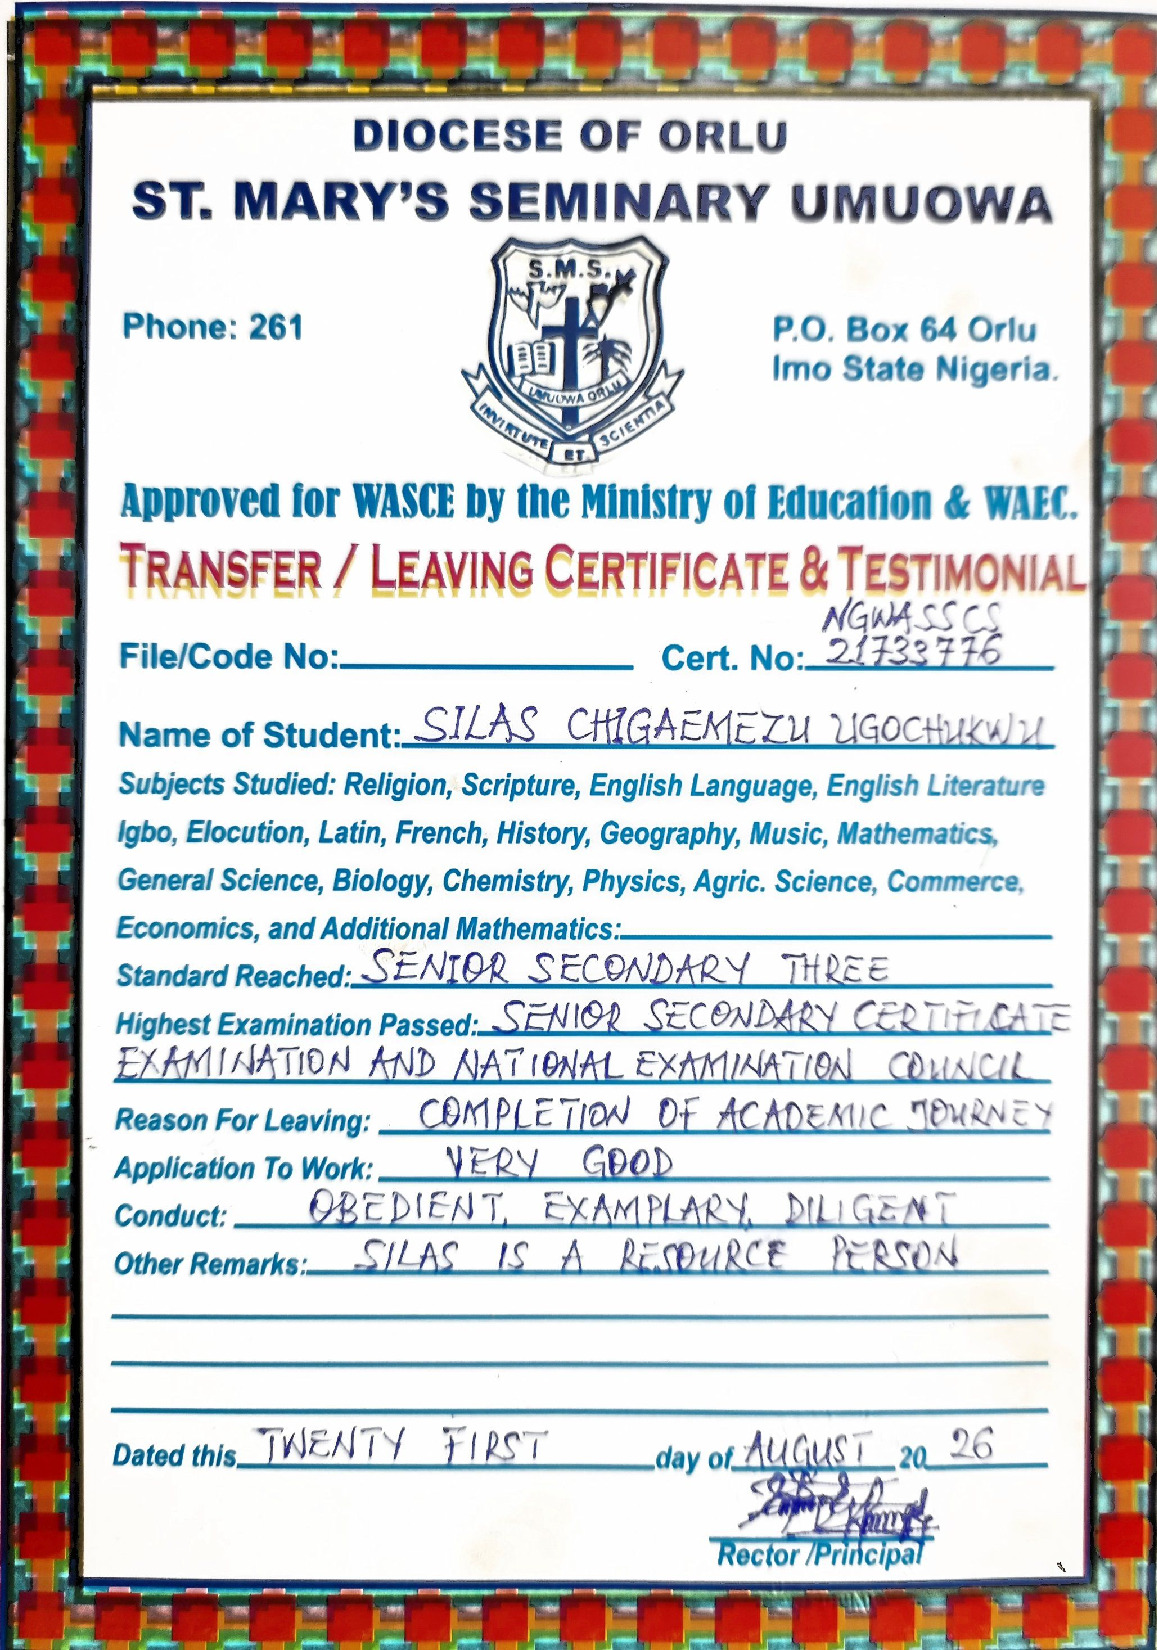 DIOCESE OF ORLU
ST. MARY'S SEMINARY UMUOWA
S.M.S.
UMUOWA ORLU
INVIRTUTE ET SCIENTIA
Phone: 261
P.O. Box 64 Orlu
Imo State Nigeria.
Approved for WASCE by the Ministry of Education & WAEC.
TRANSFER / LEAVING CERTIFICATE & TESTIMONIAL
NGWASSCS
File/Code No: Cert. No: 21733776
Name of Student: SILAS CHIGAEMEZU UGOCHUKWU
Subjects Studied: Religion, Scripture, English Language, English Literature
Igbo, Elocution, Latin, French, History, Geography, Music, Mathematics,
General Science, Biology, Chemistry, Physics, Agric. Science, Commerce,
Economics, and Additional Mathematics:
Standard Reached: SENIOR SECONDARY THREE
Highest Examination Passed: SENIOR SECONDARY CERTIFICATE
EXAMINATION AND NATIONAL EXAMINATION COUNCIL
Reason For Leaving: COMPLETION OF ACADEMIC JOURNEY
Application To Work: VERY GOOD
Conduct: OBEDIENT, EXAMPLARY, DILIGENT
Other Remarks: SILAS IS A RESOURCE PERSON
Dated this TWENTY FIRST day of AUGUST 20 26
Rector /Principal